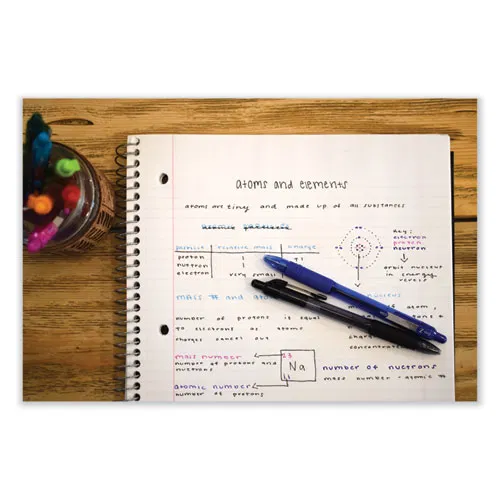 atoms and elements
atoms are tiny and made up of all substances
particle relative mass charge
proton 1 +1
neutron 1
electron very small
Key:
electron
proton
neutron
orbit nucleus
in energy
levels
mass # and
nucleus
number of protons is equal
to electrons so atomic
charges cancel out
atom,
mass number
number of protons and
neutrons
23
Na
11
atomic number
number of protons
number of neutrons
mass number - atomic #